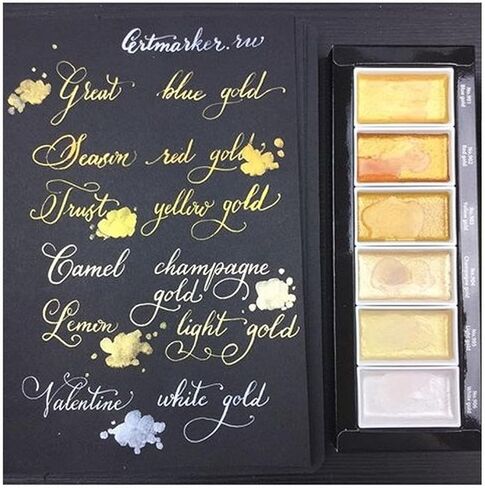 Certmarker.ru
Great blue gold
Season red gold
Trust yellow gold
Camel champagne
gold
Lemon light gold
Valentine white gold
No.901
Blue gold
No.902
Red gold
No.903
Yellow gold
No.904
Champagne gold
No.905
Light gold
No.906
White gold